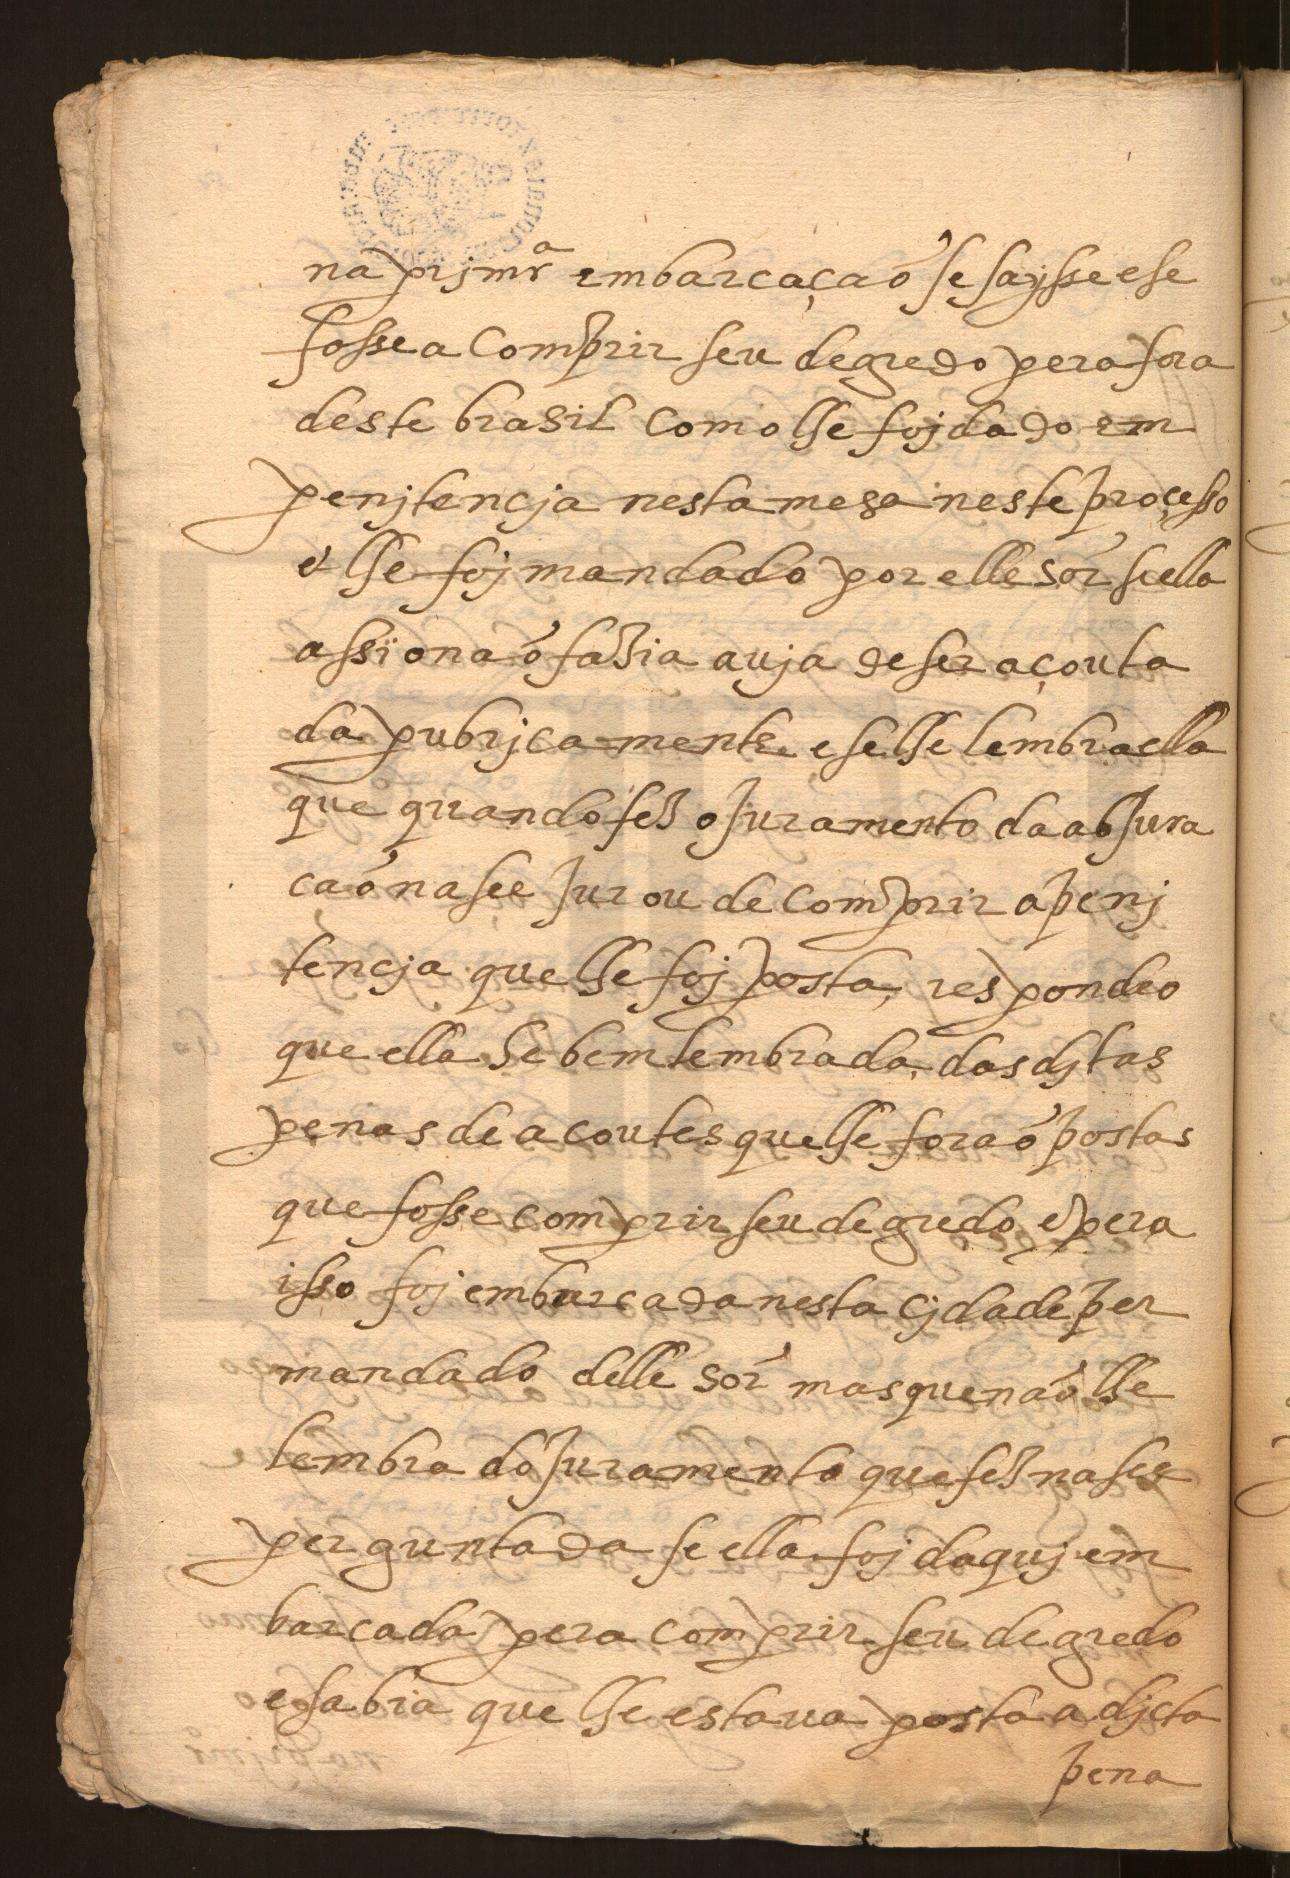 na prjmrª embarcação se saysse e se
fosse a comprir seu degredo pera fora
deste brasil como lhe foj dado em
penjtencja nesta mesa neste proçesso
e lhe foj mandado por elle sor se ella
assi o não fazia auja de ser açouta
da pubrjcamente e se lhe lembra ella
que quando fez o juramento da abjura
ção na see jurou de comprir a penj
tencja que lhe foj posta, respondeo
que ella he bem lembrada, das djtas
penas de acoutes que lhe forão postas
que fosse comprir seu degredo, e pera
isso foj embarcada nesta cjdade per
mandado delle sor mas que não lhe
lembra do juramento que fez na see
perguntada se ella foj daquj em
barcada pera comprir seu degredo
e sabia que lhe estaua posta a djcta
pena